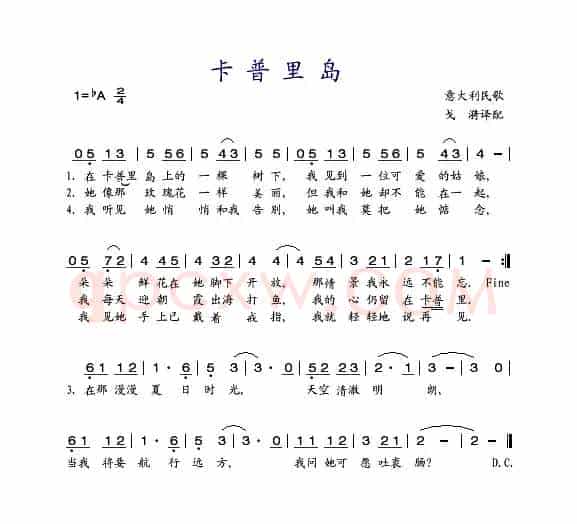 卡普里岛
1=♭A 2/4
意大利民歌
戈 漪译配
05 13 | 5 56 | 5 43 | 5 5 | 05 13 | 5 56 | 5 56 | 5 43 | 5
1. 在卡普里岛上的一棵 树下, 我见到一位可爱的姑娘,
2. 她像那 玫瑰花 一样 美丽, 但我和她却不能在一起,
4. 我听见 她悄 悄和我告别, 她叫我莫把 她 惦 念,
05 72 | 4 45 | 4 32 | 4 4 | 4 43 | 21 23 | 2 17 | 1 - :||
朵朵 鲜花在她脚下开放, 那情景我永远不能忘. Fine
我每天迎朝 霞出海打鱼, 我的 心仍留在卡普里.
我见她手上已戴着 戒指, 我就 轻轻地说再 见.
61 12 | 1 · 2 | 23 5 | 3 3·0 | 52 23 | 2 · 1 | 3 - | 3 0
3. 在那漫漫 夏 日时光, 天空清澈 明 朗,
61 12 | 1 · 6 | 5 · 5 | 3·0 | 61 12 | 1 · 2 | 2 - | 2 - ||
当我 将要 航 行远方, 我问 她可 愿吐衷 肠? D.C.